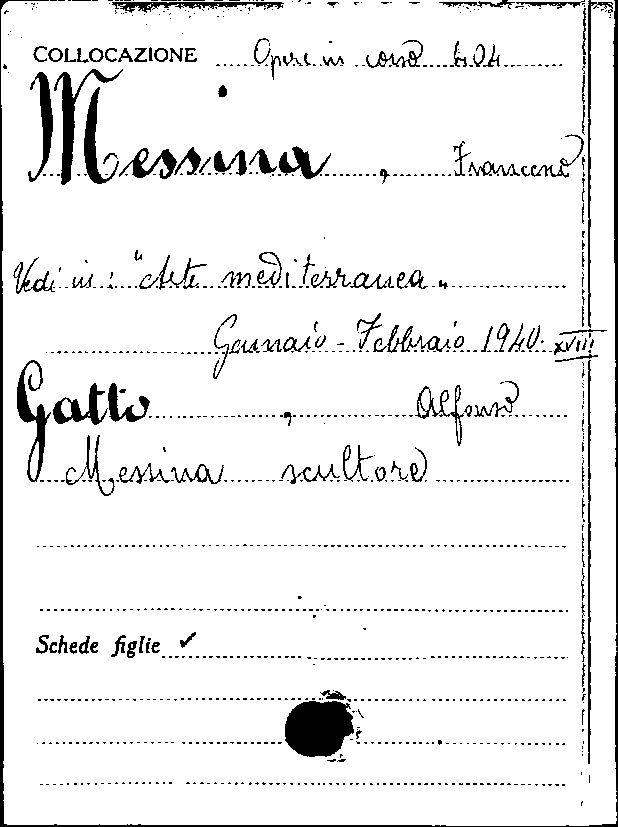 COLLOCAZIONE Opere in corso 404
Messina, Francesco
Vedi in: "Arte mediterranea„
Gennaio - Febbraio 1940. XVIII
Gatto, Alfonso
Messina scultore
Schede figlie ✓